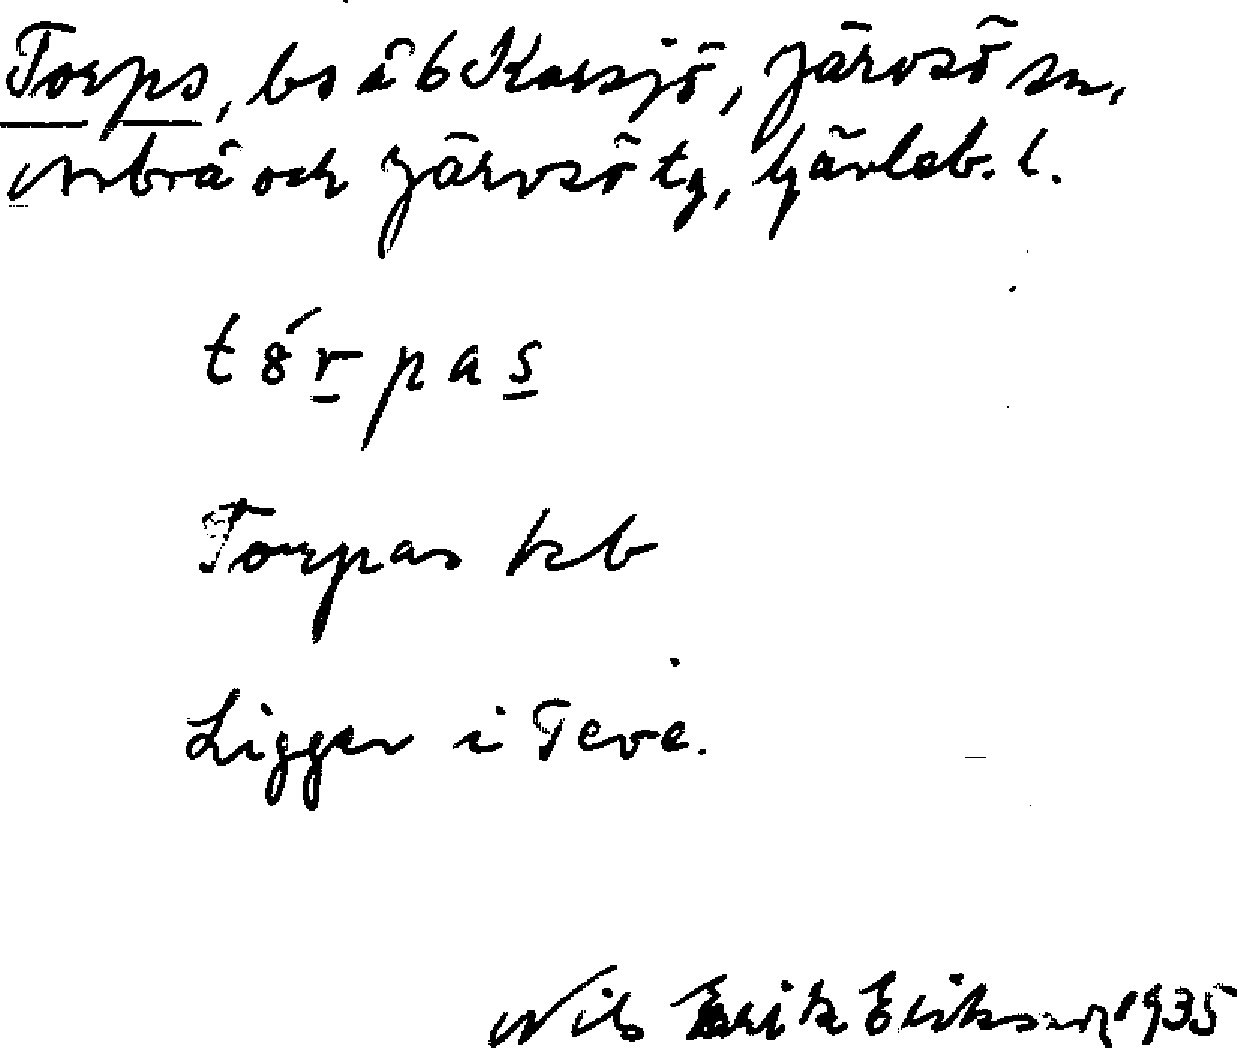 Torps, bs å 6 Karsjö, Järvsö sn,
Arbrå och Järvsö tg, Gävleb. l.
tó̤rpas
Torpas kb
Ligger i Teve.
Nils Erik Eriksson 1935